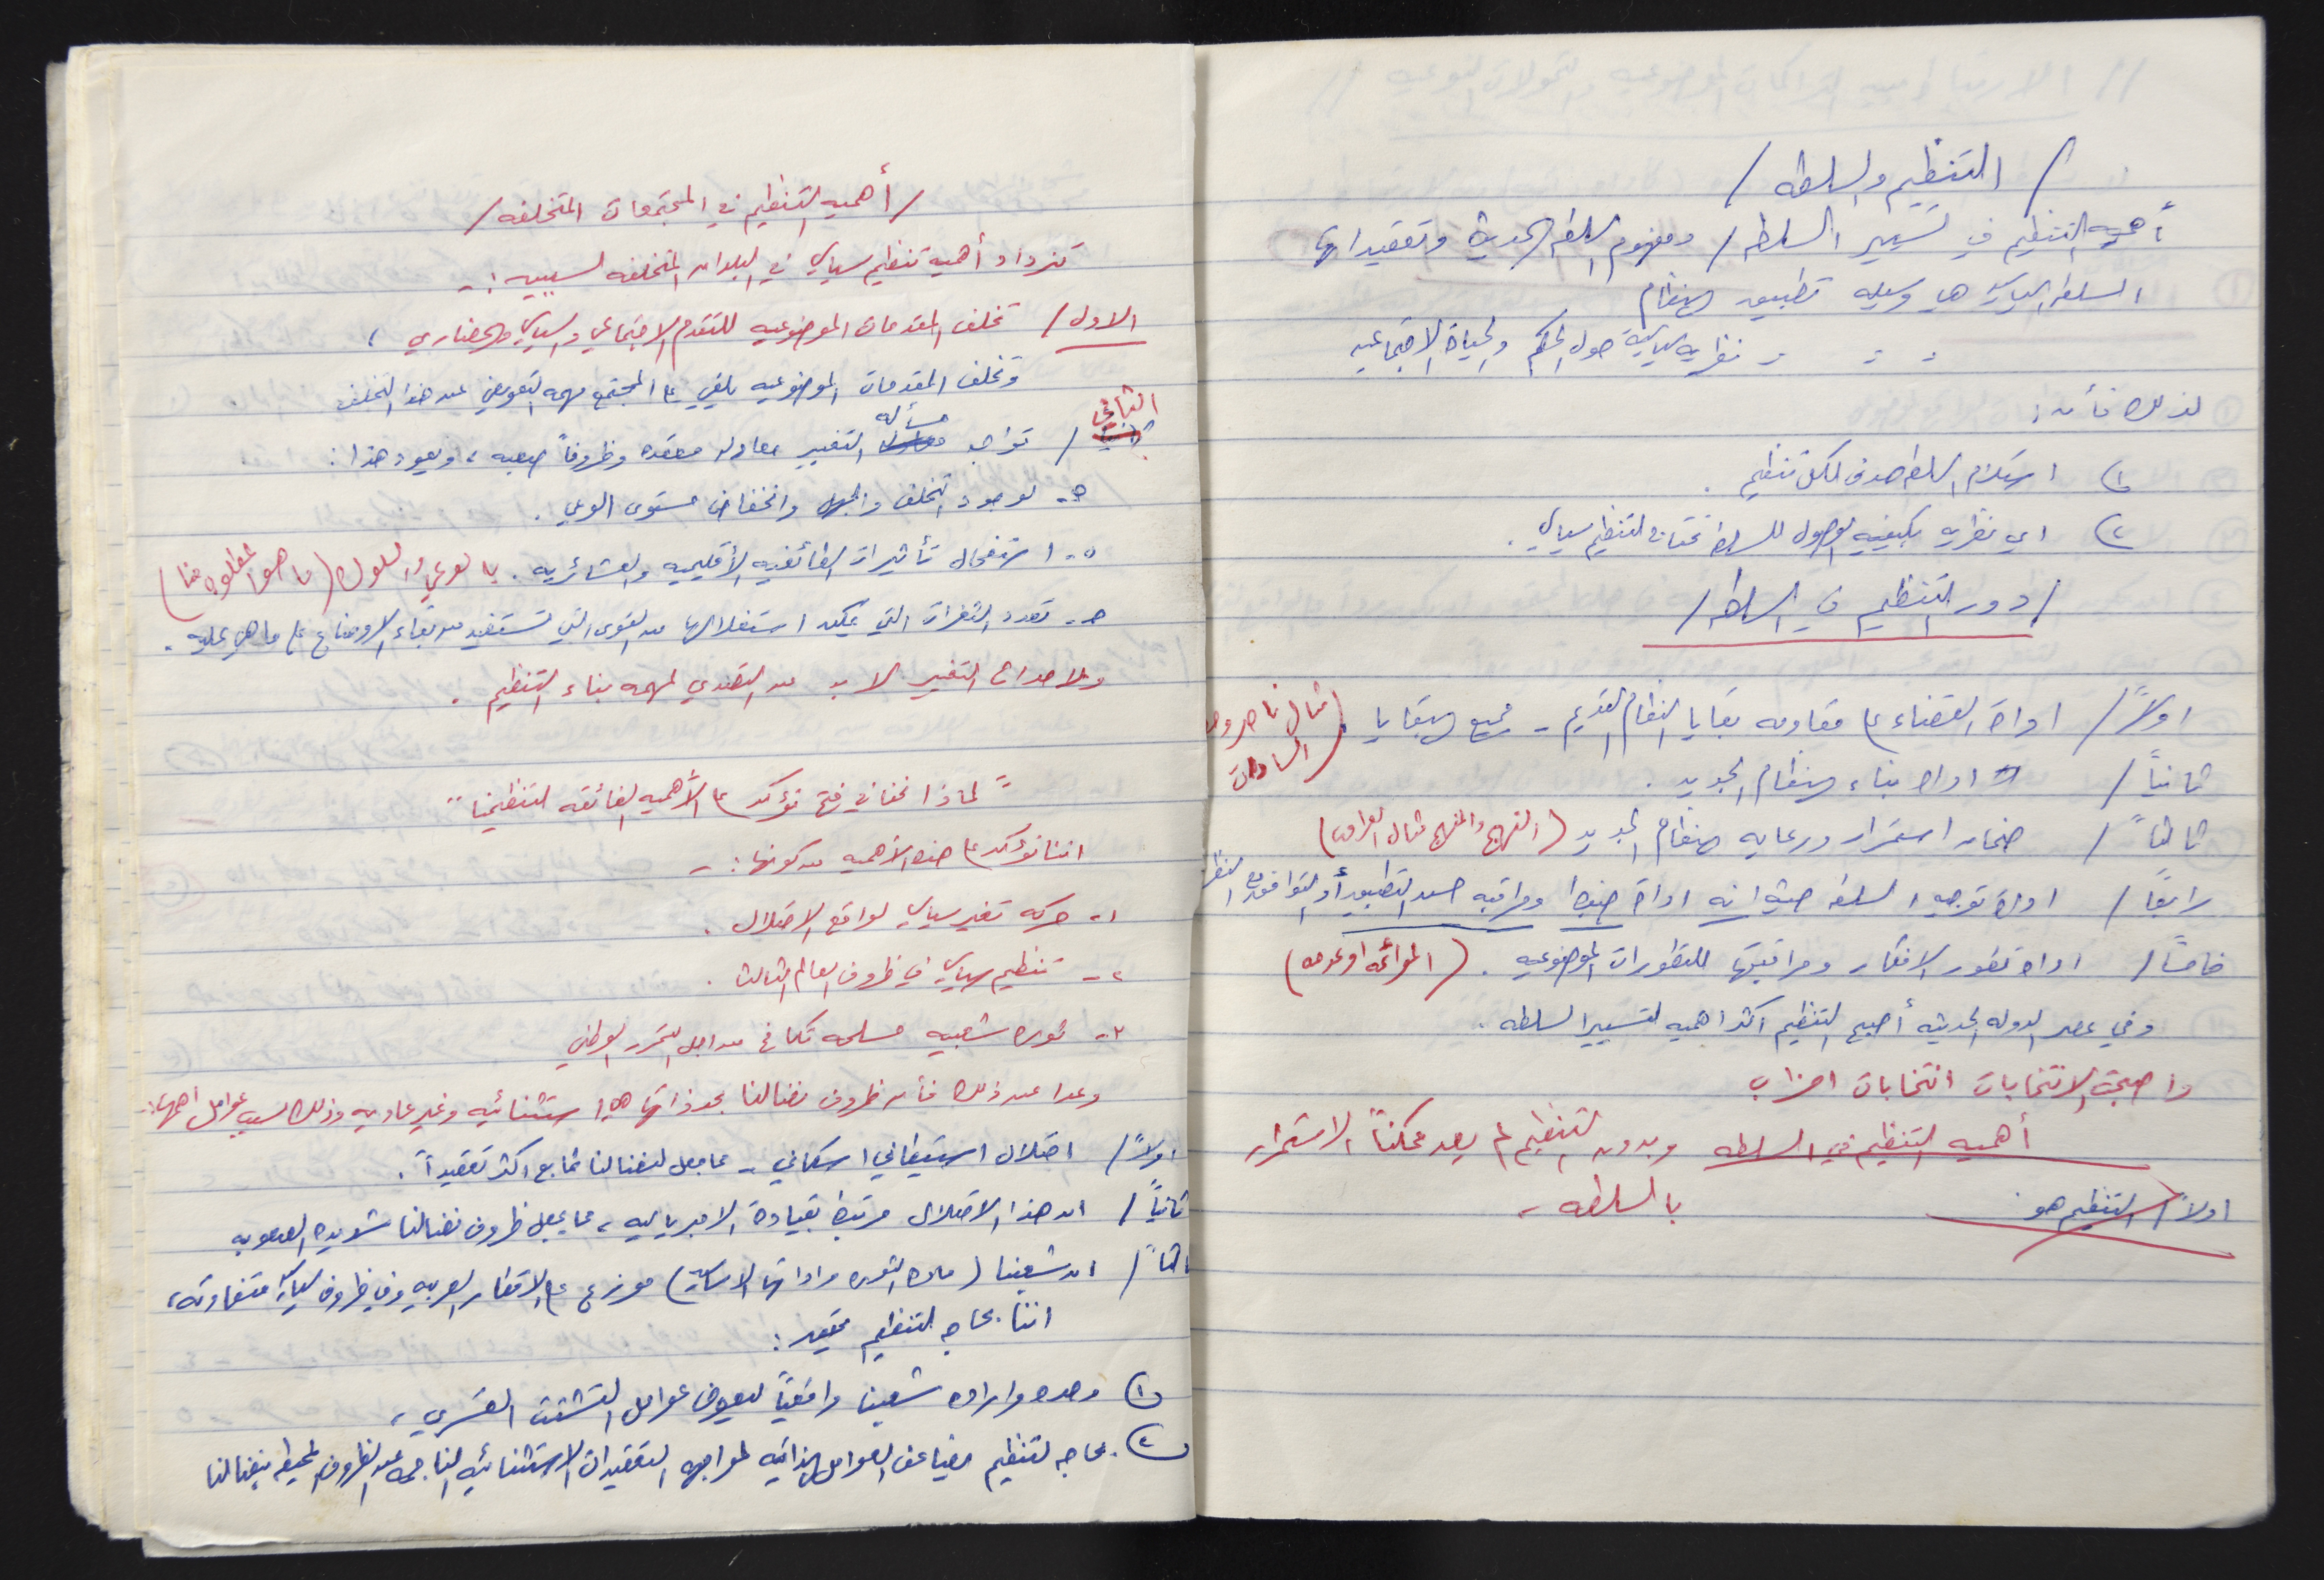 / التنظيم والسلطه /
أهمية التنظيم في تسيير السلطه / ومفهوم السلطه الحديثة وتعقيداتها
السلطه السياسيه هي وسيله تطبيق النظام
= = = نظريه سياسية حول الحكم والحياة الاجتماعيه
لذلك فأن :
١) استلام السلطه هدف لكل تنظيم .
٢) اي نظريه بكيفيه الوصول للسلطه تحتاج لتنظيم سياسي .
/ دور التنظيم في السلطه /
اولاً / اداة القضاء على مقاومه بقايا النظام القديم - جميع البقايا (مثال ناصر و السادات)
ثانياً / اداه بناء النظام الجديد .
ثالثاً / ضمان استمرار ورعايه النظام الجديد (النهج والمنهج مثال العراق)
رابعاً / اداة توجيه السلطه حيث انه اداة ضبط ومراقبه حسن التطبيق أو التوافق مع النظريه
خامساً / اداه تطور الافكار ومراقبتها للتطورات الموضوعيه . (الموائمه او عدمه)
وفي عصر الدوله الحديثه أصبح التنظيم اكثر اهميه لتسيير السلطه .
واصبحت الانتخابات انتخابات احزاب
أهميه التنظيم في السلطه وبدون التنظيم لم يعد ممكناً الاستمرار
بالسلطه -
اولاً / التنظيم هو :
/ أهميه التنظيم في المجتمعات المتخلفه /
تزداد أهمية تنظيم سياسي في البلدان المتخلفه لسببين :-
الاول / تخلف المقدمات الموضوعيه للتقدم الاجتماعي والسياسي والحضاري ،
وتخلف المقدمات الموضوعيه يلقي على المجتمع مهمه التعويض عن هذا التخلف
الثاني / تواجه مسأله التغيير معادله معقده وظروفاً صعبه ، ويعود هذا :
٥- لوجود التخلف والجهل وانخفاض مستوى الوعي .
٥- استفحال تأثيرات الطائفيه الأقليميه والعشائريه . بالوعي والسلوك (ما هو المطلوب منا)
٥- تعدد الثغرات التي يمكن استغلالها من القوى التي تستفيد من بقاء الاوضاع على ما هي عليه .
ولاحداث التغيير لا بد من التصدي لمهمه بناء التنظيم .
" لماذا نحن في فتح نؤكد على الأهميه الفائقه لتنظيمنا "
اننا نؤكد على هذه الأهميه من كونها :-
١- حركه تغيير سياسي لواقع الاحتلال .
٢- تنظيم سياسي في ظروف العالم الثالث .
٣- ثوره شعبيه مسلحه تكافح من اجل التحرر الوطني
وعدا عن ذلك فأن ظروف نضالنا بحد ذاتها هي استثنائيه وغير عاديه وذلك لسبب عوامل اهمها :-
اولاً / احتلال استيطاني اسكاني - مما جعل لنضالنا طابع اكثر تعقيداً .
ثانياً / ان هذا الاحتلال مرتبط بقيادة الامبرياليه ، مما يجعل ظروف نضالنا شديده الصعوبه
ثالثاً / ان شعبنا (ماده الثوره واداتها الاساسيه) موزع على الاقطار العربيه وفي ظروف سياسية متفاوته ،
اننا بحاجه لتنظيم يجسد :
١) وحده واراده شعبنا واقعياً ليعوض عوامل التشتت القسري ،
٢) بحاجه لتنظيم يضاعف العوامل الذاتيه لمواجهه التعقيدات الاستثنائيه الناجمه عن الظروف المحيطه بنضالنا